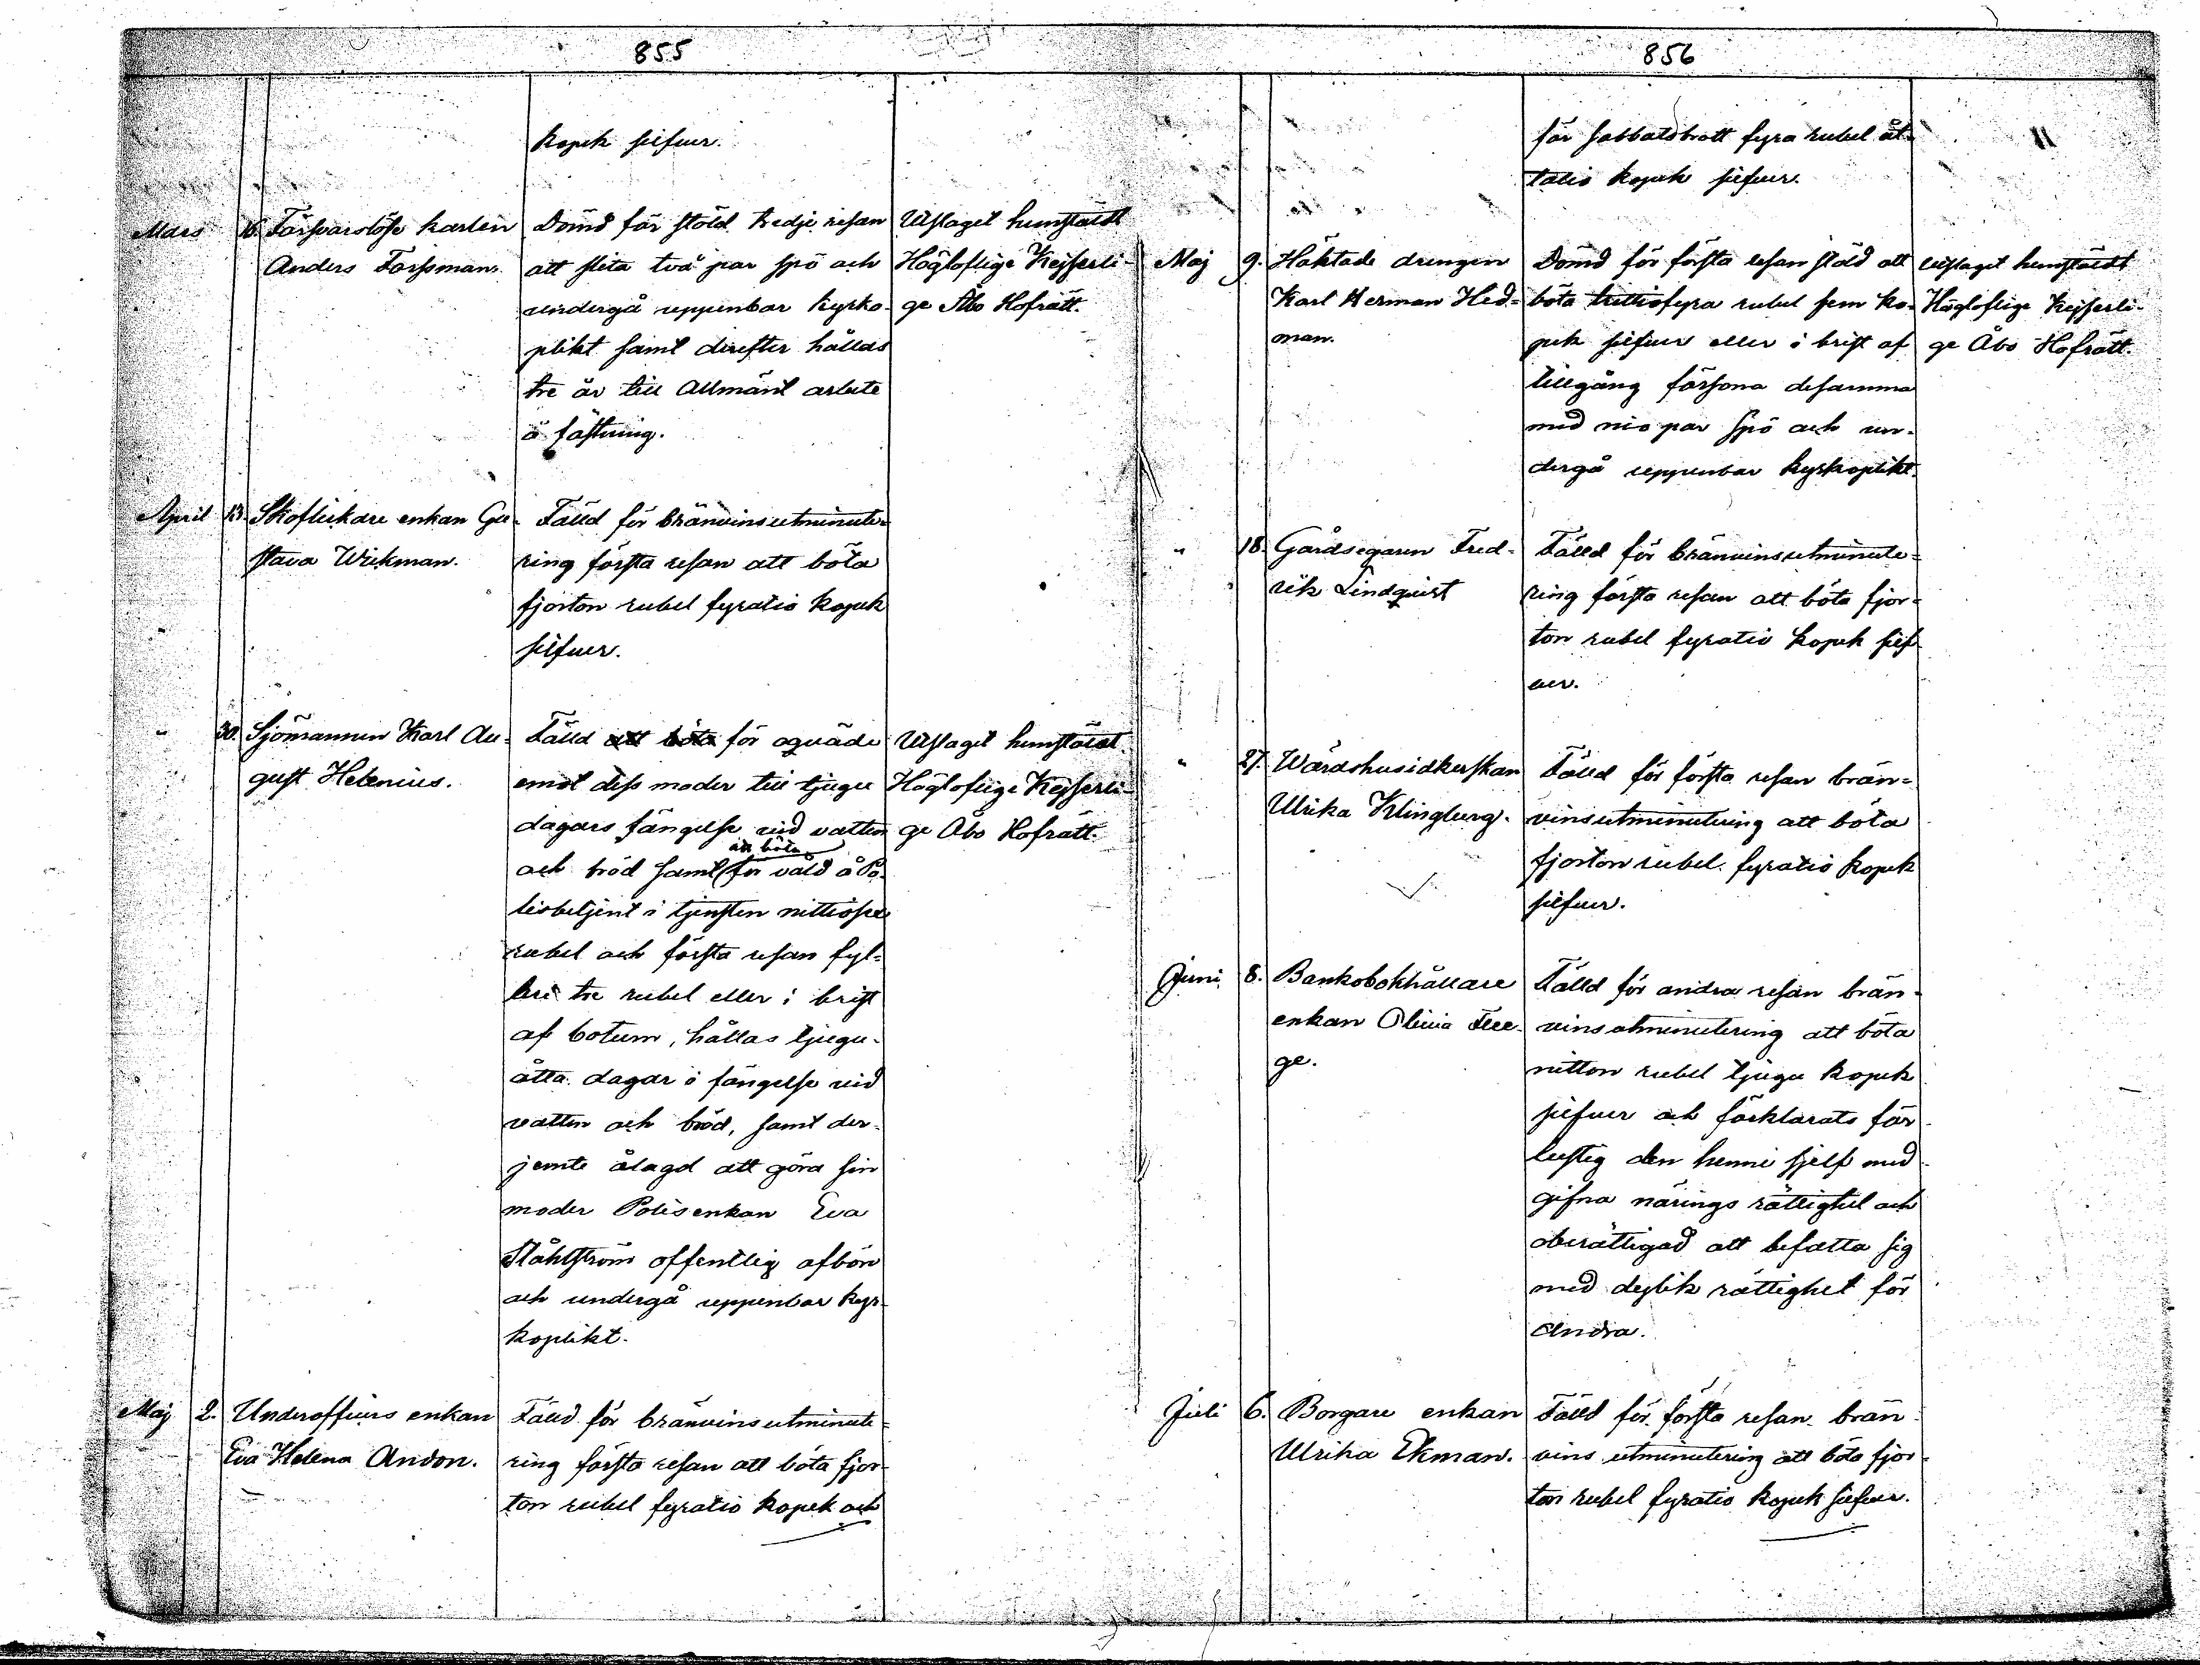 855
kopek silfver.
Mars 16. Försvarslöse karlen
Anders Forssman.
Dömd för stöld tredje resan
att slita två par spö och
undergå uppenbar kyrko-
plikt samt derefter hållas
tre år till Allmänt arbete
å fästning.
Utslaget hemstäldt
Högloflige Kejserli-
ge Åbo Hofrätt.
April 13. Skoflickare enkan Gu-
stava Wickman.
Fälld för bränvinsutminute-
ring första resan att böta
fjorton rubel fyratio kopek
silfver.
" 30. Sjömannen Karl Au-
gust Helenius.
Fälld att böta för oqväde
emot dess moder till tjugu
dagars fängelse vid vatten
att böta
och bröd samt för våld å Po-
lisbetjent i tjensten nittiosex
rubel och första resan fyl-
leri tre rubel eller i brist
af botum, hållas tjugu-
åtta dagar i fängelse vid
vatten och bröd, samt der-
jemte ålagd att göra sin
moder Polisenkan Eva
Ståhlström offentlig afbön
och undergå uppenbar kyr-
koplikt.
Utslaget hemstäldt
Högloflige Kejserli-
ge Åbo Hofrätt.
Maj 2. Underofficers enkan
Eva Helena Andon.
Fälld för bränvinsutminute-
ring första resan att böta fjor-
ton rubel fyratio kopek och
856
för sabbatsbrott fyra rubel åt-
tatio kopek silfver.
Maj 9. Häktade drengen
Karl Herman Hed-
man.
Dömd för första resan stöld att
böta trettiofyra rubel fem ko-
pek silfver eller i brist af
tillgång försona desamma
med nio par spö och un-
dergå uppenbar kyrkoplikt.
Utslaget hemstäldt
Högloflige Kejserli-
ge Åbo Hofrätt.
" 18. Gårdsegaren Fred-
rik Lindqvist
Fälld för bränvinsutminute-
ring första resan att böta fjor-
ton rubel fyratio kopek silf-
ver.
" 27. Wärdshusidkerskan
Ulrika Klingberg.
Fälld för första resan brän-
vinsutminutering att böta
fjorton rubel fyratio kopek
silfver.
Juni 8. Bankobokhållare
enkan Olivia Flee-
ge.
Fälld för andra resan brän-
vinsutminutering att böta
nitton rubel tjugu kopek
silfver och förklarats för-
lustig den henne sjelf med-
gifna närings rättighet och
oberättigad att befatta sig
med dylik rättighet för
Andra.
Juli 6. Borgare enkan
Ulrika Ekman.
Fälld för första resan brän-
vins utminutering att böta fjor-
ton rubel fyratio kopek silfver.